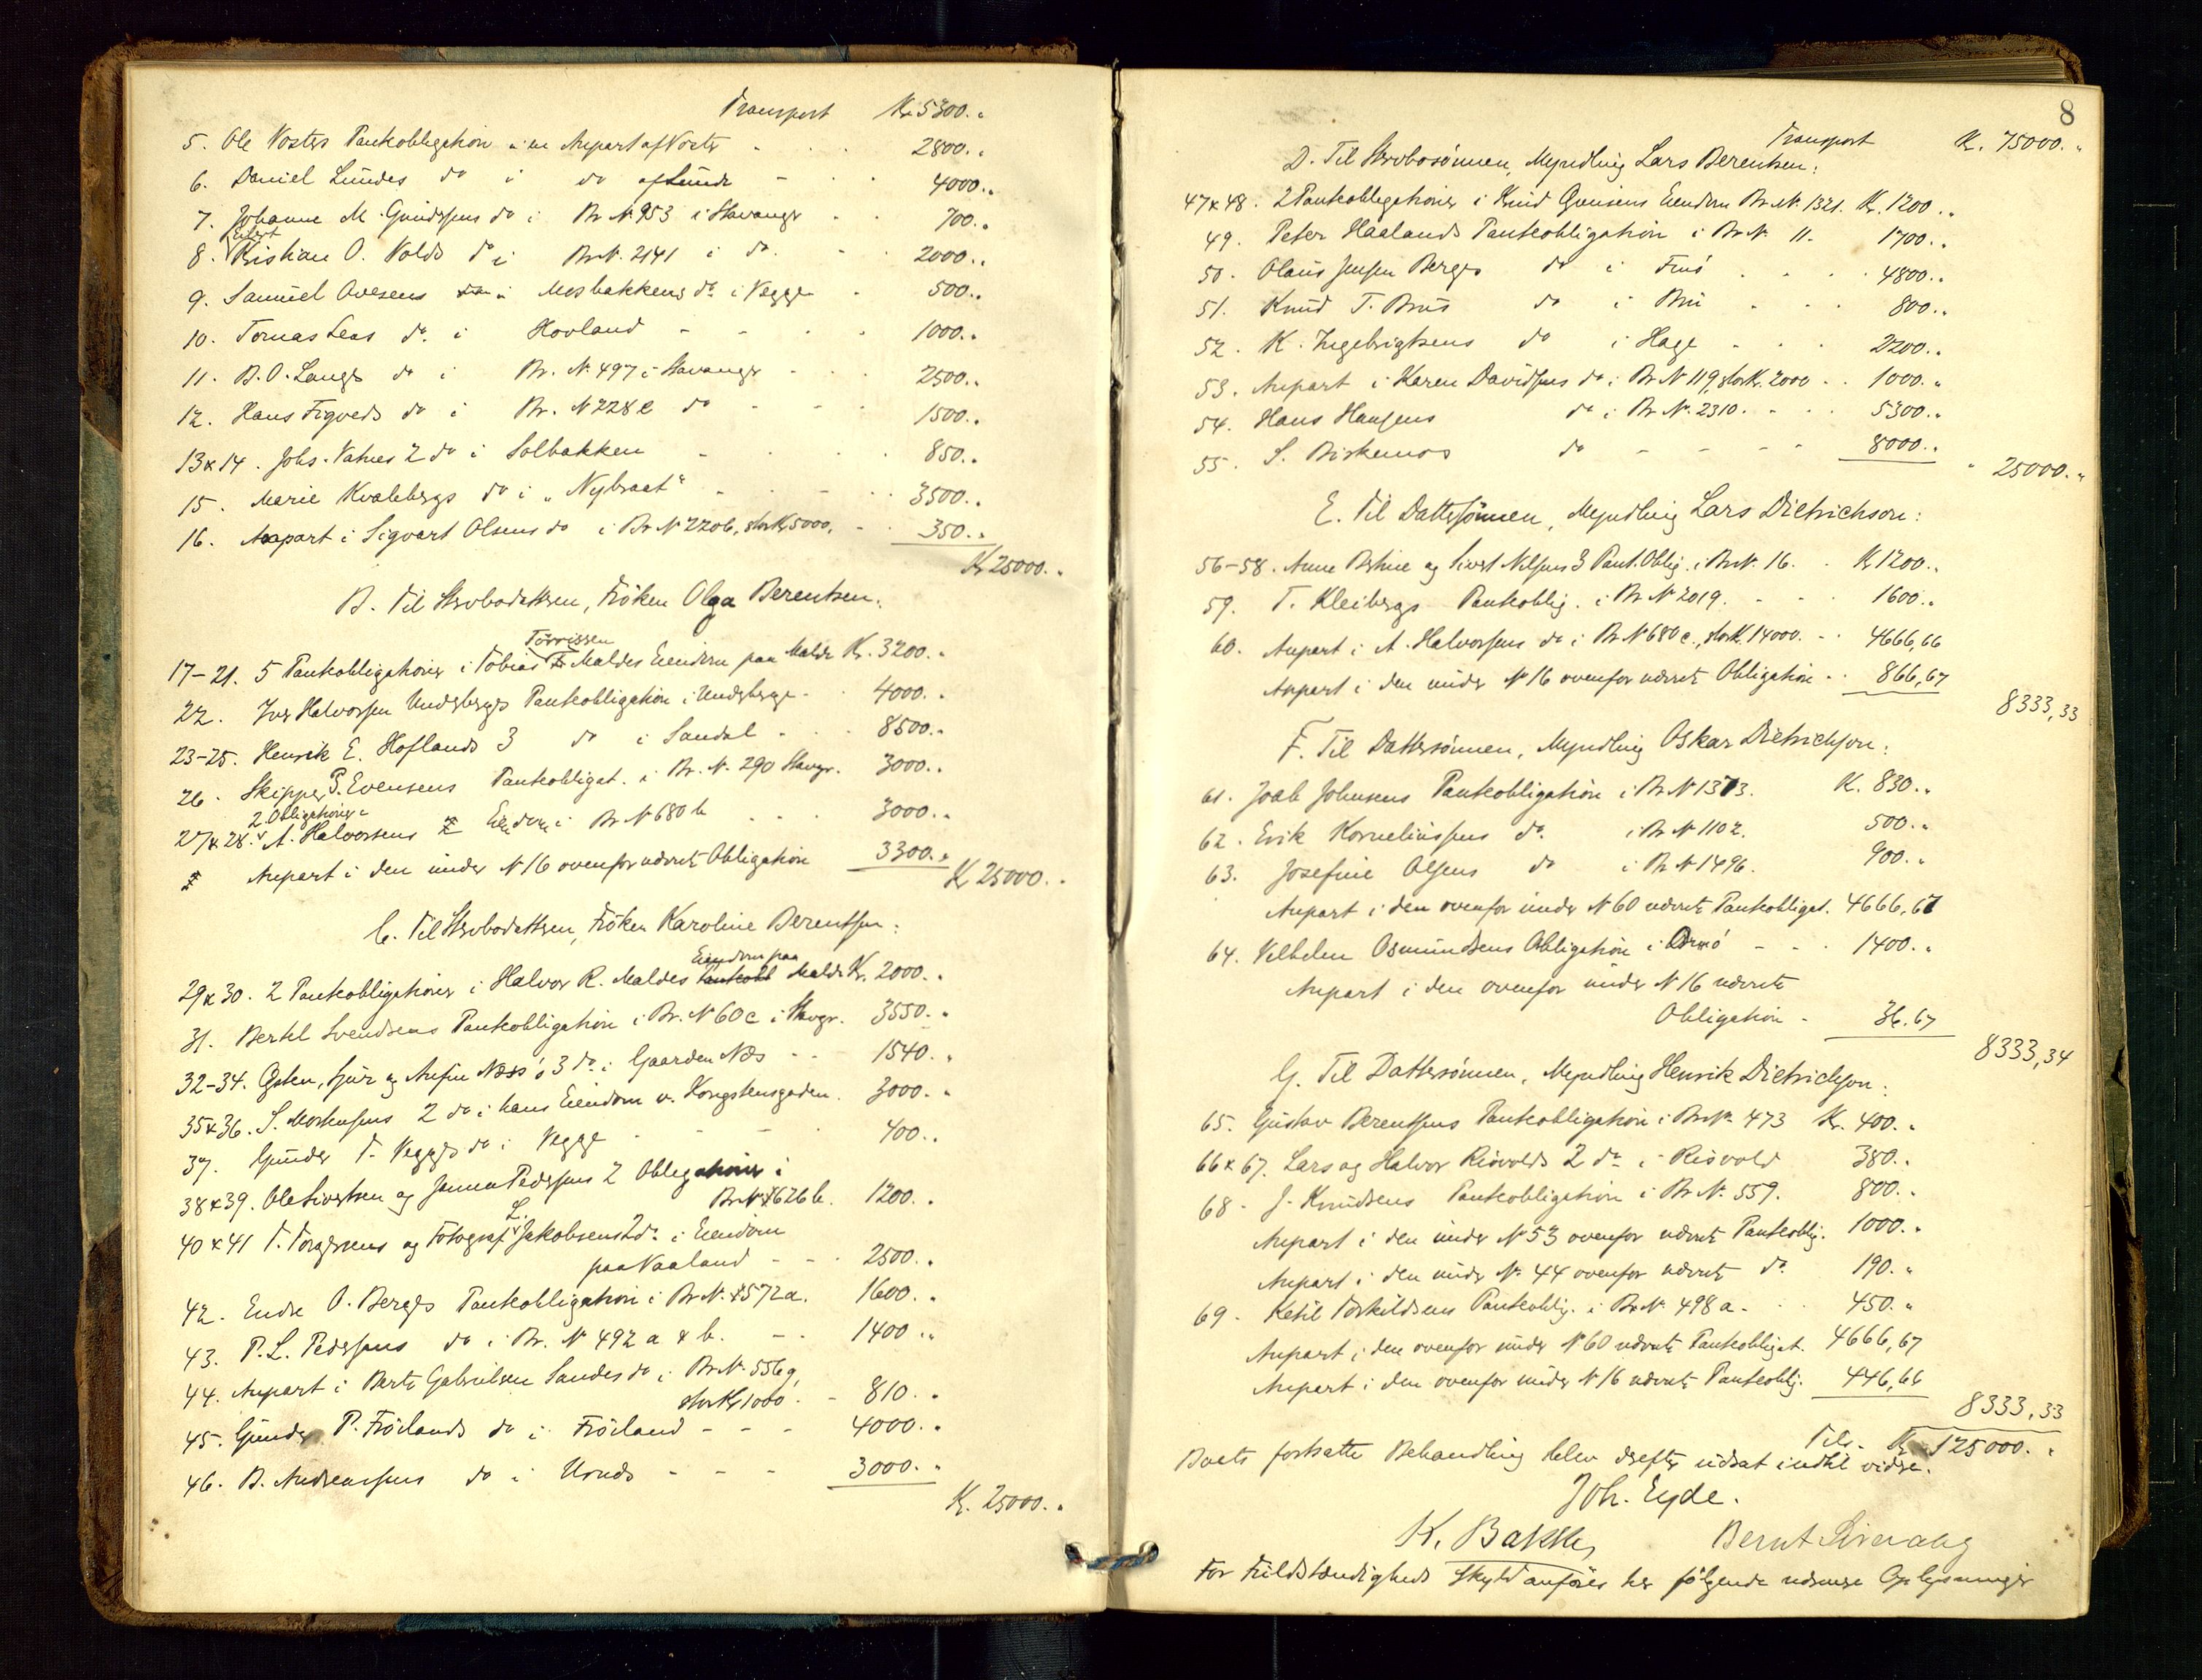 Transport Kr. 5300.„
5. Ole Vosters Panteobligation i en Anpart af Voster 2800.„
6. Daniel Lundes do i do af Lunde 4000.„
7. Johanne M. Gundersens do i Br. N. 953 i Stavanger 700.„
8. Kristian O. Volds do i Br.N. 2141 i do 2000.„
9. Samuel Ovesens i Mosbakkens do i Vegge 500.„
10. Tomas Leas do i Hovland 1000.„
11. B. O. Langs do i Br. N. 497 i Stavanger 2500.„
12. Hans Tigveds do i Br. N 228 c do 1500.„
13 & 14. Johs. Vatnes 2 do i Solbakken 850.„
15. Marie Kvalebergs do i „Nybraat“ 3500.„
16. Anpart i Sigvart Olsens do i Br N 2206, stor Kr. 5000, 350.„
Kr 25000.„
B. Til Sterbodatteren, Fröken Olga Berentsen.
Törrissen
17-21. 5 Panteobligationer i Tobias Maldes Eiendom paa Malde Kr. 3200.„
22. Iver Halvorsen Undebergs Panteobligation i Undeberge 4000.„
23-25. Henrik E. Hoflands 3 do i Sandal 8500.„
26. Skipper P. Evensens Panteobligat. i Br. N. 290 Stavgr. 3000.„
2 Obligationer i
27 & 28. A. Halvorsens Eiendom i Br N 680 b 3000.„
Anpart i den under N 16 ovenfor nævnte Obligation 3300.„
Kr 25000.„
C. Til Sterbodatteren, Fröken Karoline Berentsen:
Eiendom paa
29 & 30. 2 Panteobligationer i Halvor R. Maldes Panteobl Malde Kr. 2000.„
31. Bertel Svendsens Panteobligation i Br. N 60 c i Stavgr. 3550.„
32-34. Östen, Sjur og Anfin Næssö 3 do i Gaarden Næs 1540.„
35 & 36. S. Mortensens 2 do i hans Eiendom v. Kongstensgaden. 3000.„
37. Gunder T. Vegges do i Vegge 400.„
38 & 39. Ole Sivertsen og Janna Pedersens 2 Obligationer i
Br N 1626 b. 1200.„
40 & 41 T. Torgersens og Fotograf L. Jakobsens 2 do i Eiendom
paa Vaaland 2500.„
42. Endre O. Berges Panteobligation i Br N. 1572 a. 1600.„
43. P. L. Pedersens do i Br. N 492 a & b. 1400.„
44. Anpart i Berte Gabrielsen Sandes do i Br N. 556 g,
stor Kr 1000. 810.„
45. Gunder P. Fröilands do i Fröiland 4000.„
46. B. Andreassens do i 3000.„
Kr. 25000.„
8
Transport Kr. 75000.„
D. Til Sterbosönnen, Myndling Lars Berentsen:
47 & 48. 2 Panteobligationer i Knud Eiendom Br. N. 1321. Kr. 1200.„
49. Peter Haalands Panteobligation i Br N. 11. 1700.„
50. Olaus Jensen Berges do i Finö 4800.„
51. Knud T. Brus do i Bru 800.„
52. K. Ingebrigtsens do i Hage 2200.„
53. Anpart i Karen Davidsens do i Br N 119, stor Kr. 2000 1000.„
54. Hans Hansens do i Br N. 2310. 5300.„
55. S. Birkemos do 8000.„
25000.„
E. Til Dattersönnen, Myndling Lars Dietrichson:
56-58. Anne Bertine og Sivert Nilsens 3 Pant. Oblig. i Br N. 16. Kr 1200.„
59. T. Kleibergs Panteoblig. i Br N 2019. 1600.„
60. Anpart i A. Halvorsens do i Br N 680 c., stor K. 14000. 4666,66
Anpart i den under N 16 ovenfor nævnte Obligation 866,67
8333,33
F. Til Dattersönnen, Myndling Oskar Dietrichson:
61. Joab Johnsens Panteobligation i Br N 1373. K. 830.„
62. Erik Korneliussens do i Br N 1102. 500.„
63. Josefine Olsens do i Br N 1496. 900.„
Anpart i den ovenfor under N 60 nævnte Panteobligat. 4666,67
64. Vilhelm Osmundsens Obligation i 1400.„
Anpart i den ovenfor under N 16 nævnte
Obligation 36.67
8333,34
G. Til Dattersönnen, Myndling Henrik Dietrichson:
65. Gustav Berentsens Panteobligation i Br N. 473 Kr. 400.„
66 & 67. Lars og Halvor Risvolds 2 do i Risvold 380.„
68. J. Knudsens Panteobligation i Br N. 559. 800.„
Anpart i den under N 53 ovenfor nævnte Panteoblig. 1000.„
Anpart i den under N. 44 ovenfor nævnte do 190.„
69. Ketil Torkildsens Panteoblig. i Br N. 498 a. 450.„
Anpart i den ovenfor under N 60 nævnte Panteobligat. 4666,67
Anpart i den ovenfor under N 16 nævnte Panteoblig. 446,66
8333,33
Tils. Kr 125000.„
Boets fortsatte Behandling blev derefter udsat indtil videre.
Joh. Eyde.
K. Bakke
For Fuldstændigheds Skyld anföres her fölgende nærmere Oplysninger